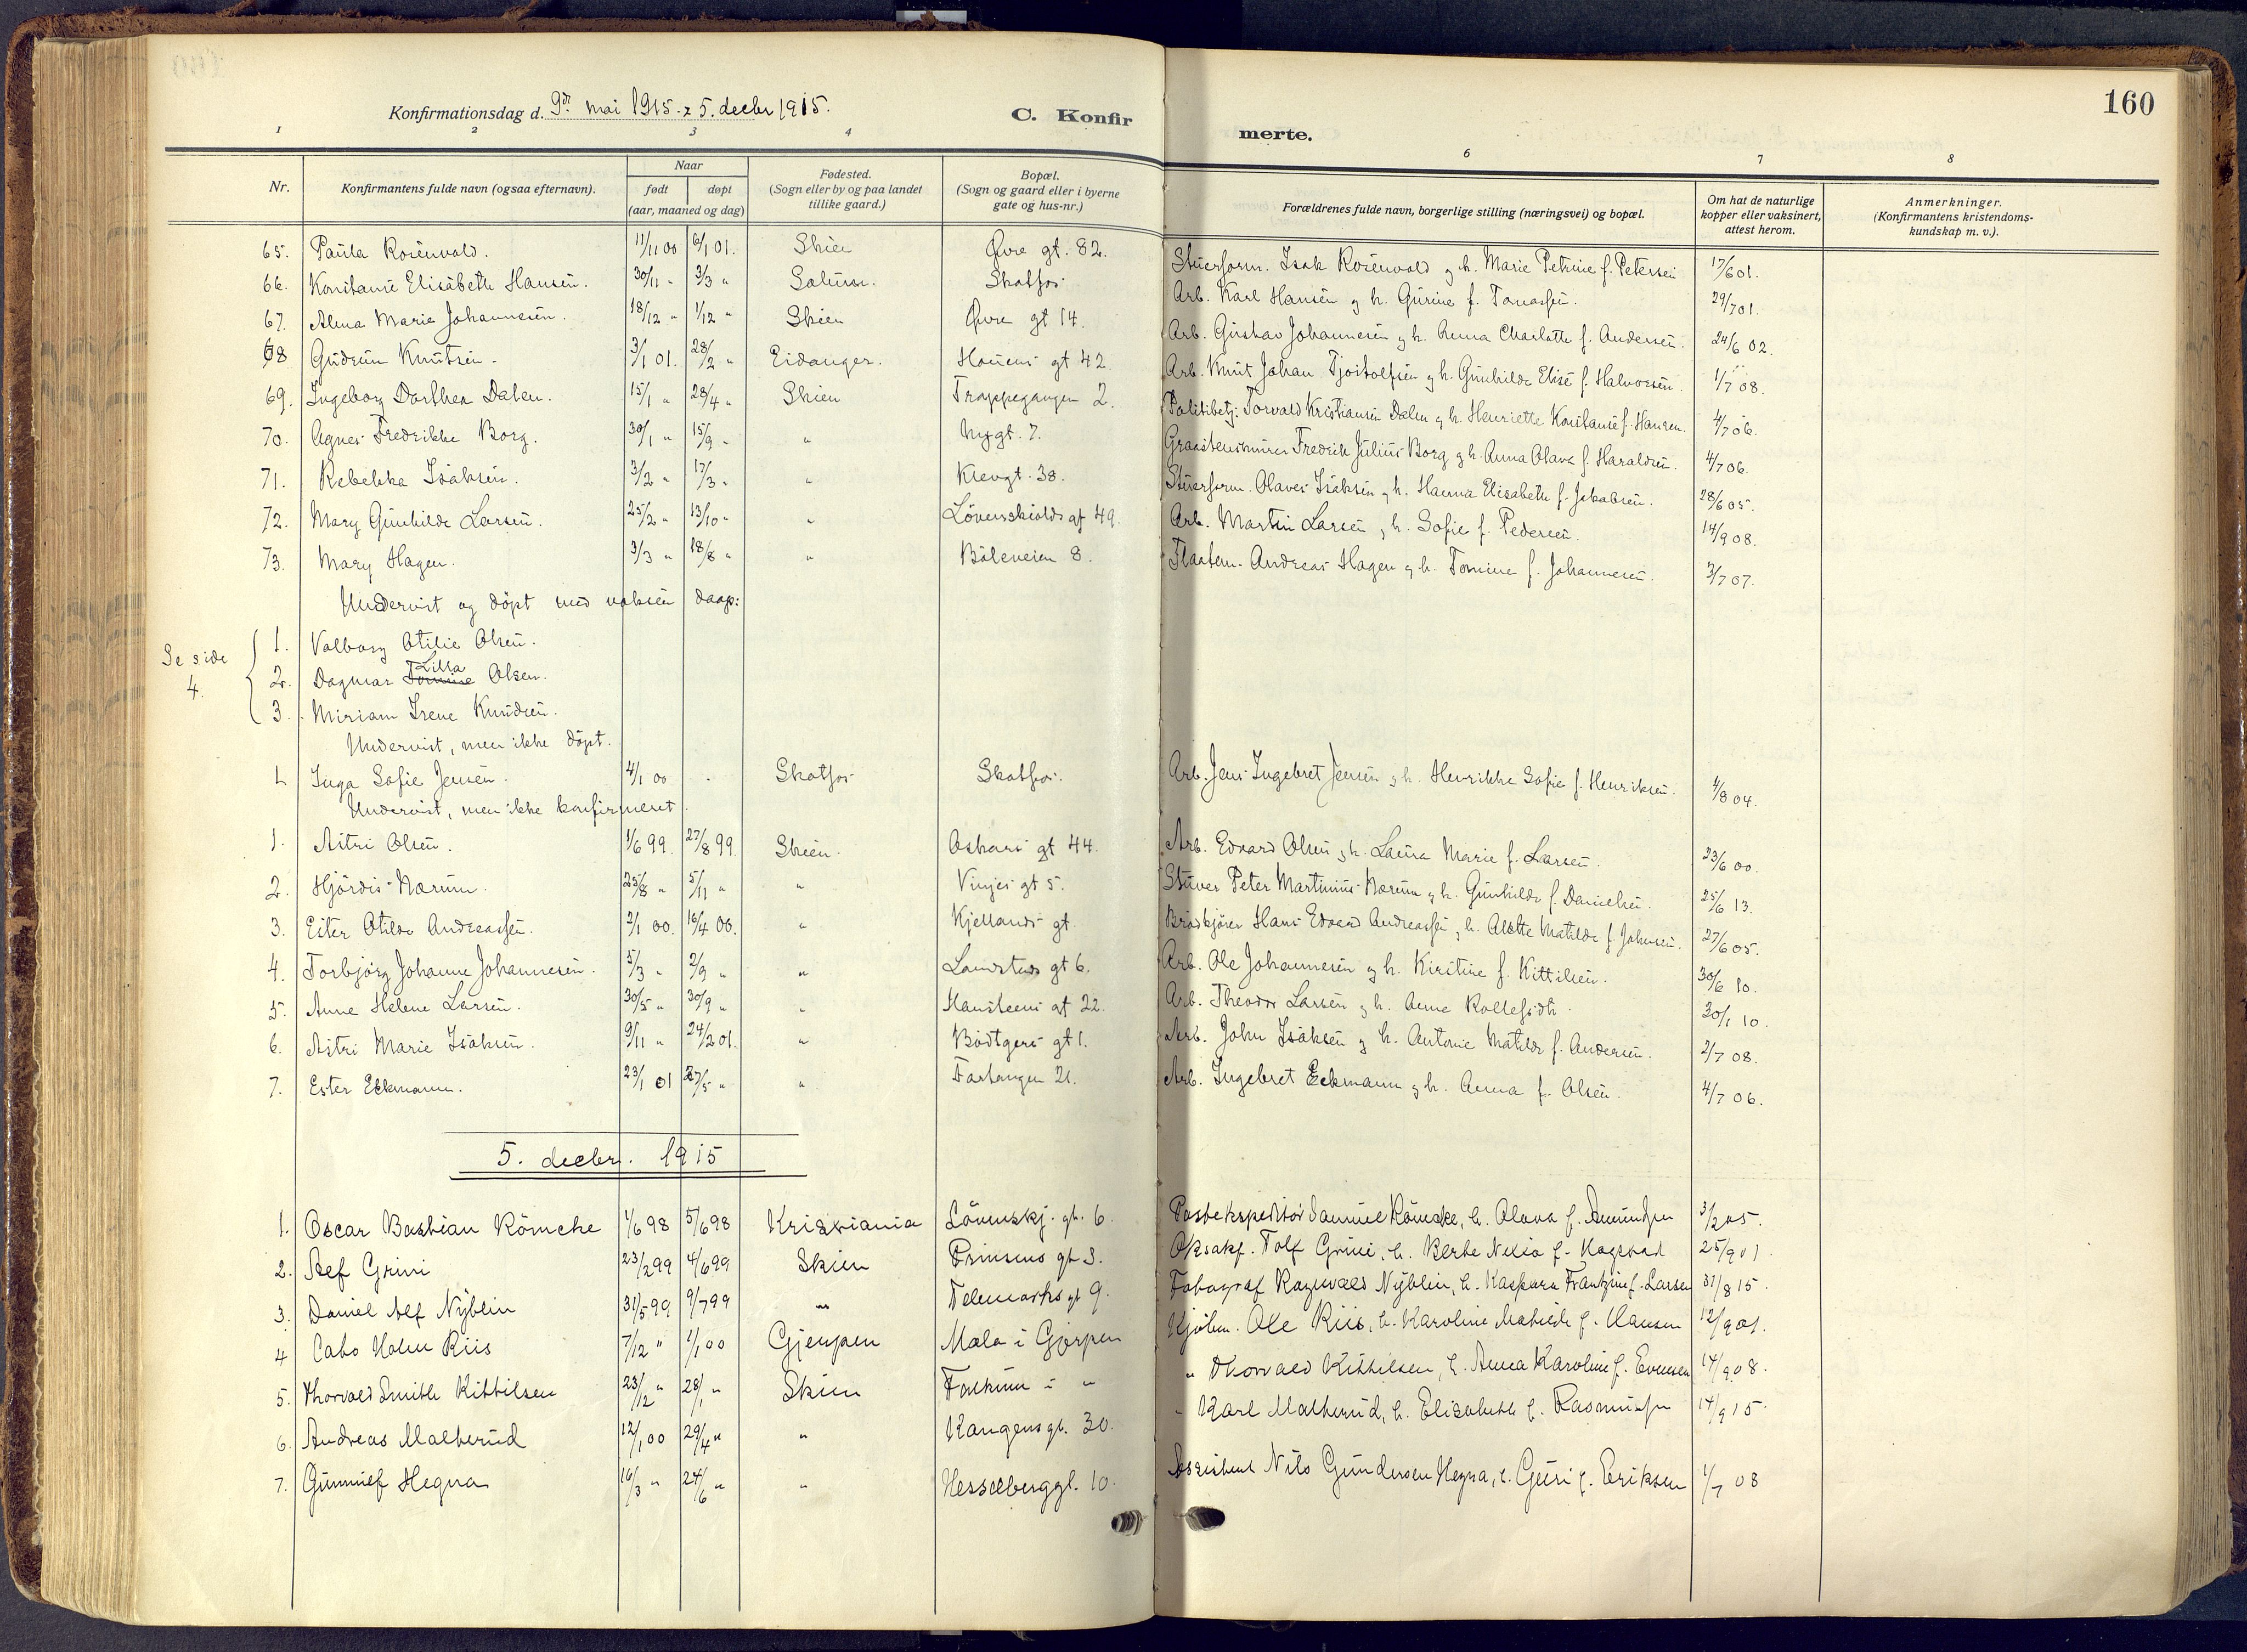 160
Konfirmationsdag d. 9de mai 1915. & 5. decbr 1915.
C. Konfirmerte.
1 2 3 4 6 7 8
Nr.
Konfirmantens fulde navn (ogsaa efternavn).
Naar
født døpt
(aar, maaned og dag)
Fødested.
(Sogn eller by og paa landet
tillike gaard.)
Bopæl.
(Sogn og gaard eller i byerne
gate og hus-nr.)
Forældrenes fulde navn, borgerlige stilling (næringsvei) og bopæl.
Om hat de naturlige
kopper eller vaksinert,
attest herom.
Anmerkninger.
(Konfirmantens kristendoms-
kundskap m. v.).
65. Paula Rosenvold. 11/11 00 6/1 01. Skien Øvre gt. 82. Stuerform. Isak Rosenvold og h. Marie Petrine f. Petersen 17/6 01.
66. Konstanse Elisabeth Hansen. 30/11 " 3/3 " Solum. Skotfos Arb. Karl Hansen og h. Gurine f. Tomassen. 29/7 01.
67. Alma Marie Johannesen. 18/12 " 1/12 " Skien Øvre gt 14. Arb. Gustav Johannesen og h. Anna Charlotte f. Andersen. 24/6 02.
68 Gudrun Knutsen. 3/1 01. 28/2 " Eidanger. Hauens gt 42. Arb. Knut Johan Tjostolfsen og h. Gunhilde Elise f. Halvorsen. 1/7 08.
69. Ingeborg Dorthea Dalen. 15/1 " 28/4 " Skien Trappegangen 2. Politibetj. Torvald Kristiansen Dalen og h. Henriette Konstanse f. Hansen. 4/7 06.
70. Agnes Fredrikke Borg. 30/1 " 15/9 " " Nygt. 7. Graastensmurer Fredrik Julius Borg og h. Anna Olava f. Haraldsen. 4/7 06.
71. Rebekka Isaksen. 3/2 " 17/3 " " Klevgt. 38. Stuerform. Olaves Isaksen og h. Hanna Elisabeth f. Jakobsen. 28/6 05.
72. Mary Gunhilde Larsen. 25/2 " 13/10 " " Lövenskiolds gt 49. Arb. Martin Larsen, h. Sofie f. Pedersen. 14/9 08.
73. Mary Hagen. 3/3 " 18/8 " " Böleveien 8. Flaatem. Andreas Hagen og h. Tomine f. Johannesen. 3/7 07.
Undervist og döpt med voksen daap:
Se side
4.
1. Valborg Otilie Olsen.
2. Dagmar Tomine Lilla Olsen.
3. Miriam Irene Knudsen.
Undervist, men ikke döpt.
1 Inga Sofie Jensen. 4/1 00 . Skotfos Skotfos. Arb. Jens Ingebret Jensen og h. Henrikke Sofie f. Henriksen. 4/8 04.
Undervist, men ikke konfirmeret.
1. Astri Olsen. 1/6 99. 27/8 99. Skien. Oskars gt 44. Arb. Edvard Olsen og h. Laura Marie f. Larsen. 23/6 00.
2. Hjördis Norum. 25/8 " 5/11 " " Vinjes gt 5. Stuver Peter Martinius Norum og h. Gunhilde f. Danielsen. 25/6 13.
3. Ester Otilde Andreassen. 2/1 00. 16/4 00. " Kjellands gt. Brödkjörer Hans Edvard Andreassen og h. Alette Matilde f. Johnsen. 27/6 05.
4. Torbjörg Johanne Johannesen. 5/3 " 2/9 " " Landstads gt 6. Arb. Ole Johannesen og h. Kirstine f. Kittilsen. 30/6 10.
5. Anne Helene Larsen. 30/5 " 30/9 " " Hansteens gt 22. Arb. Theodor Larsen og h. Anne Rollefsdtr. 30/1 10.
6. Astri Marie Isaksen. 9/11 " 24/2 01. " Bödtgers gt 1. Arb. John Isaksen og h. Antonie Matilde f. Andersen. 2/7 08.
7. Ester Eckmann. 23/1 01 27/5 " " Fartangen 21. Arb. Ingebret Eckmann og h. Anna f. Olsen. 4/7 06.
5. decbr. 1915
1. Oscar Bastian Römcke 1/6 98 5/6 98 Kristiania Lövenskj. gt. 6. Postekspeditör Samuel Römcke, h. Olava f. Amundsen 3/2 05.
2. Alf Grini 23/2 99 4/6 99 Skien Prinsens gt 3. Oksakf. Tolf Grini, h. Berte f. Hogstad 25/9 01.
3. Daniel Alf Nyblin 31/5 99 9/7 99 " Telemarks gt 9. Fotograf Ragnvald Nyblin, h. Kaspara Frantzine f. Larsen 31/8 15.
4 Cato Holm Riis 7/12 " 1/1 00 Gjerpen Mæla i Gjerpen Kjöbm. Ole Riis, h. Karoline Mathilde f. Hansen 12/9 01.
5. Thorvald Smith Kittilsen 23/12 " 28/1 " Skien Falkum i " " Thorvald Kittilsen, h. Anna Karoline f. Evensen 14/9 08.
6. Andreas Malterud 12/1 00 29/4 " " Kongens gt. 30. " Karl Malterud, h. Elisabeth f. Rasmussen 14/9 15.
7. Gunnulf Hegna 16/3 " 24/6 " " Hesselberggt. 10. Assistent Nils Gundersen Hegna, h. Guri f. Eriksen 1/7 08